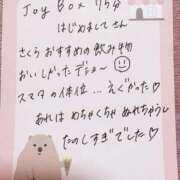 Joy Box 75分
はじめまして さん
さくら おすすめの 飲み物
おいしかったデショー
スマタの体位…えぐかった♡
あれは めちゃくちゃ ぬれちゃうし
たのしすぎでした♡